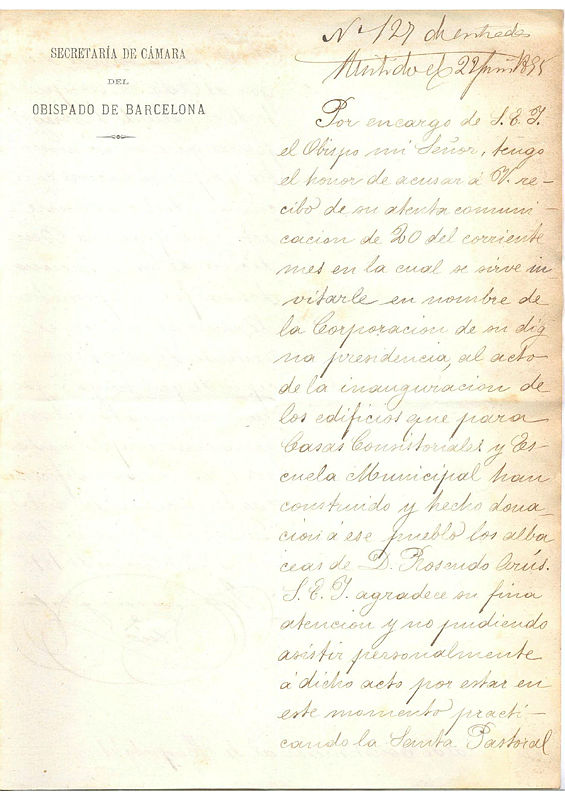 SECRETARÍA DE CÁMARA
DEL
OBISPADO DE BARCELONA
Nº 127 de entrada
22 junio 1895
Por encargo de S. E. I.
el Obispo mi Señor, tengo
el honor de acusar á V. re-
cibo de su atenta comuni-
cacion de 20 del corriente
mes en la cual se sirve in
vitarle en nombre de
la Corporacion de su dig
na presidencia, al acto
de la inauguracion de
los edificios que para
Casas Consistoriales y Es-
cuela Municipal han
construido y hecho dona-
cion á ese pueblo los alba
ceas de D. Rosendo Arús.
S. E. I. agradece su fina
atencion y no pudiendo
asistir personalmente
á dicho acto por estar en
este momento practi-
cando la Santa Pastoral